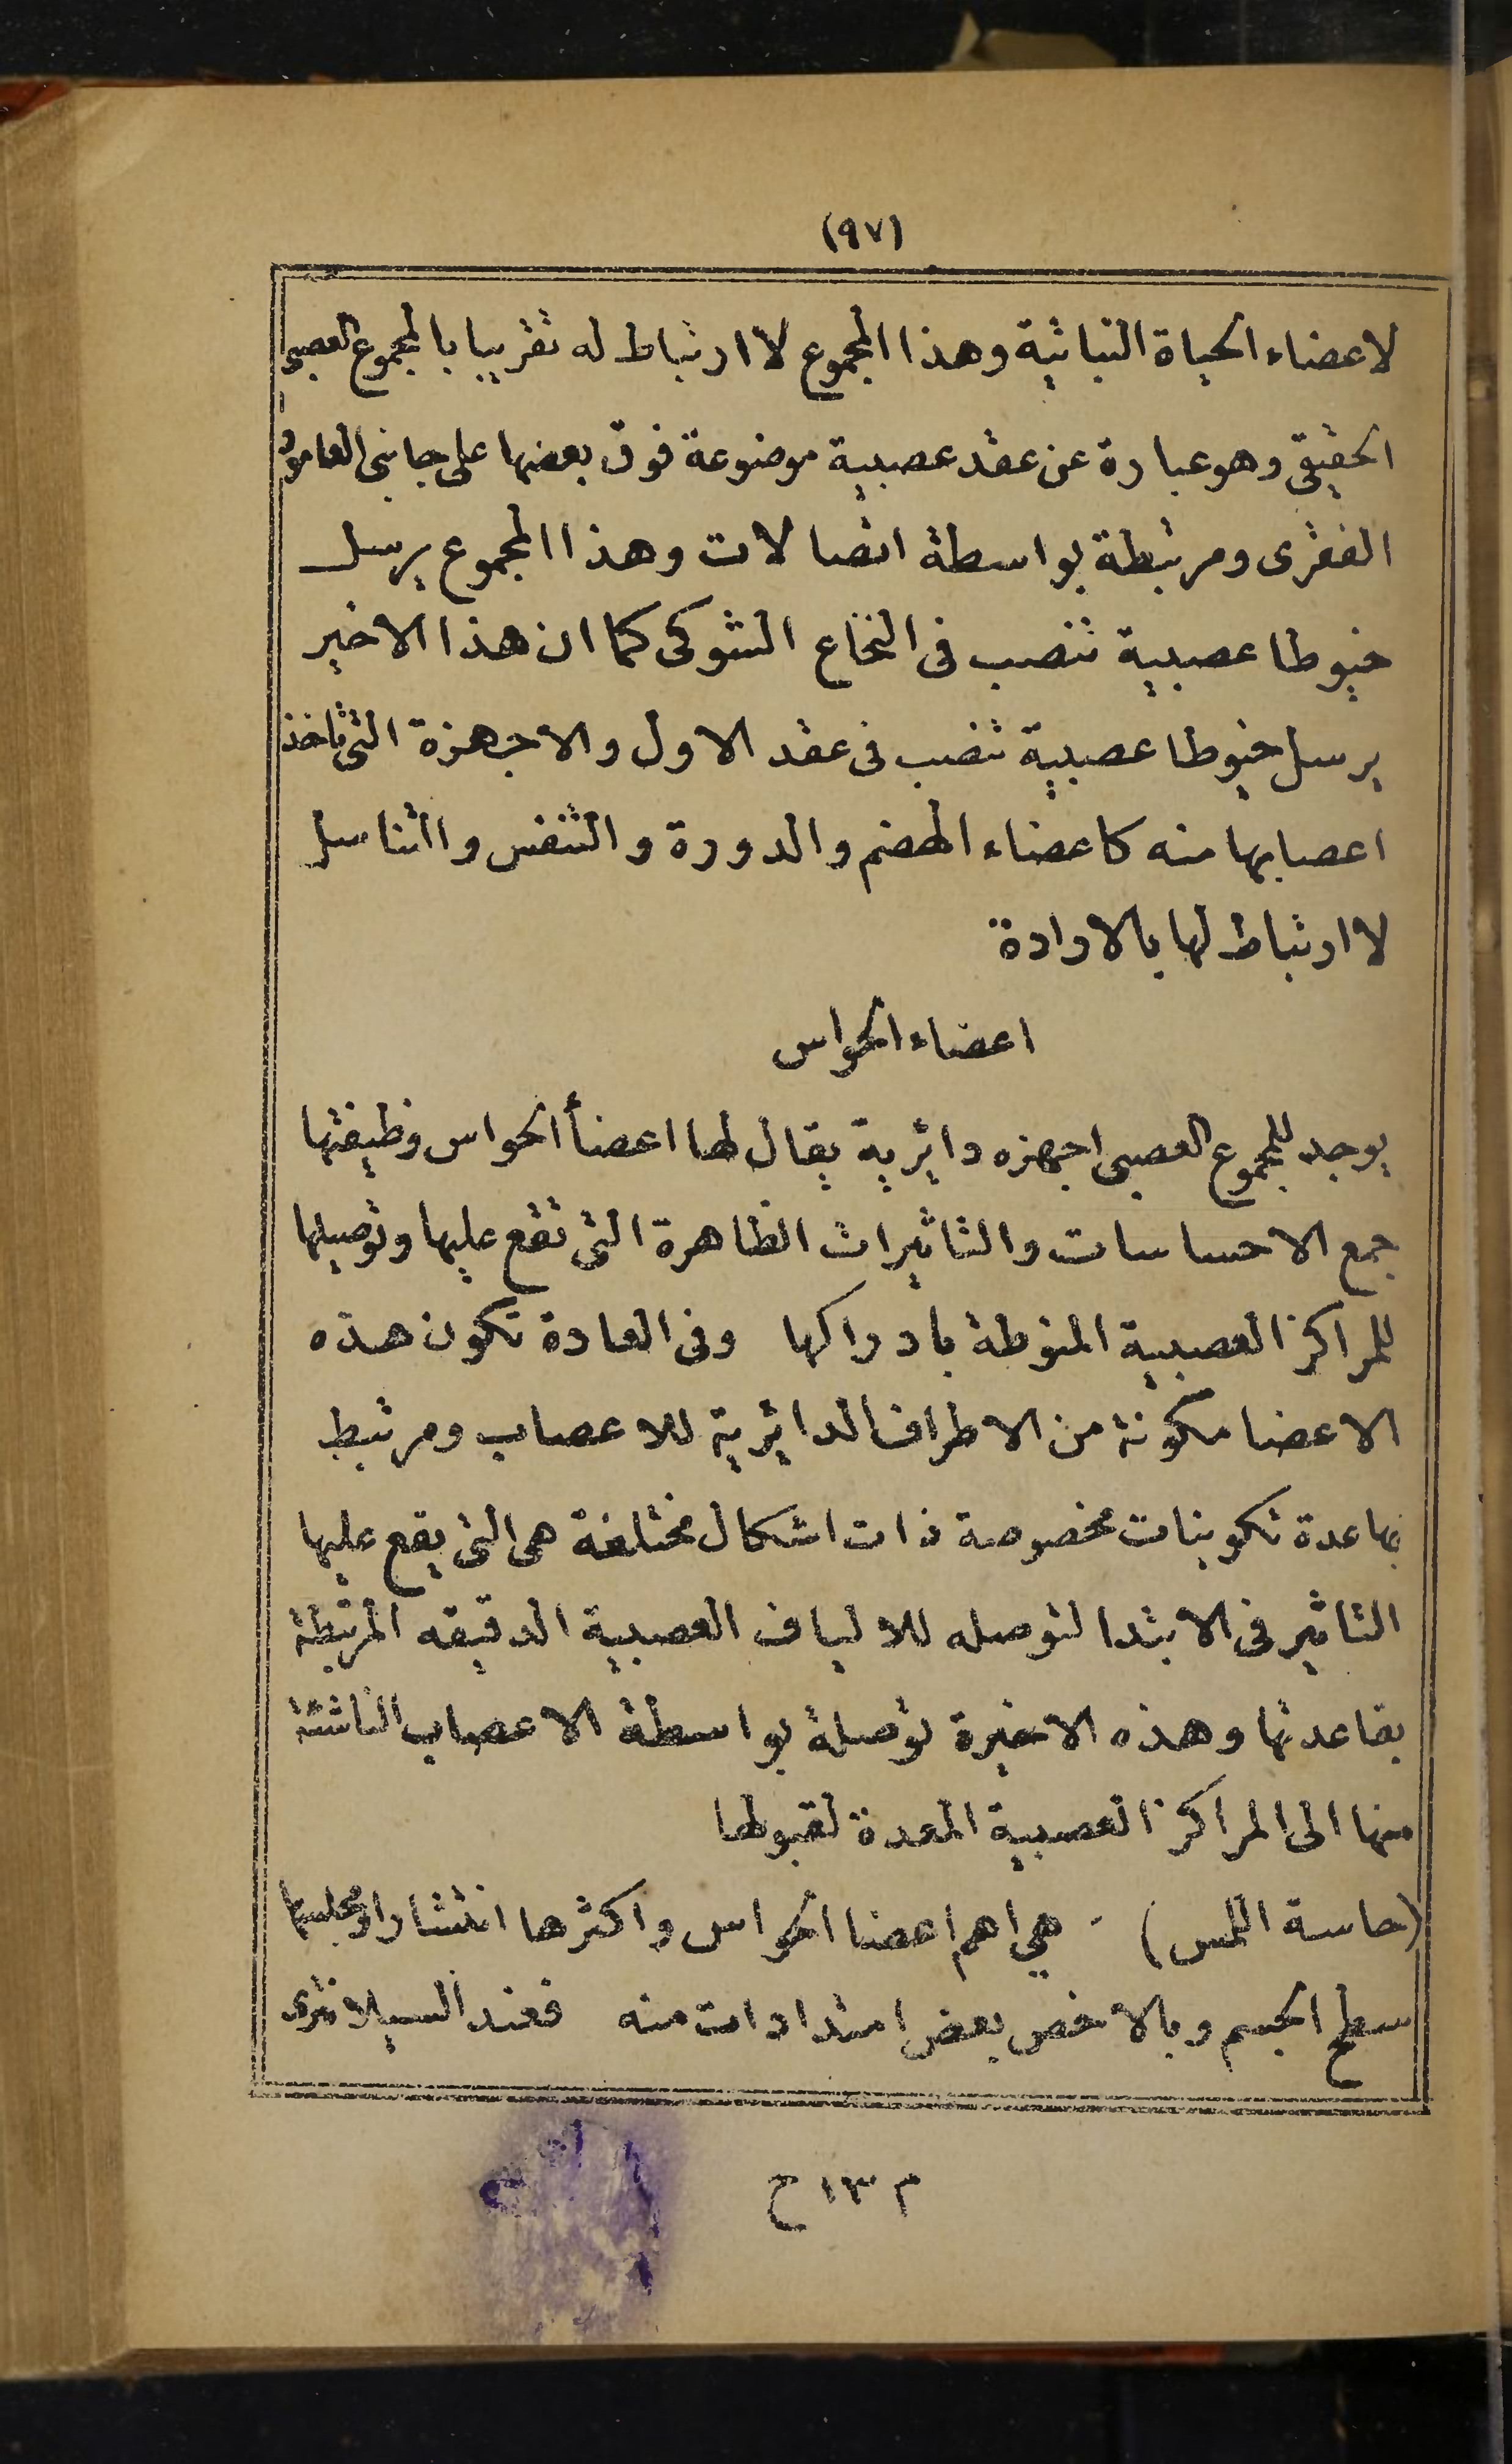 (٩٧)
لاعضاء الحياة النباتية وهذا المجموع لا ارتباط له تقريبا بالمجموع العصبى
الحقيقى وهو عبارة عن عقد عصبية موضوعة فوق بعضها على جانبى العامود
الفقرى ومرتبطة بواسطة اتصالات وهذا المجموع يرسل
خيوطا عصبية تنصب فى النخاع الشوكى كما ان هذا الاخير
يرسل خيوطا عصبية تنصب فى عقد الاول والاجهزة التى تاخذ
اعصابها منه كاعضاء الهضم والدورة والتنفس والتناسل
لا ارتباط لها بالارادة
اعضاء الحواس
يوجد للمجموع العصبى اجهزه دائرية يقال لها اعضأ الحواس وظيفتها
جمع الاحساسات والتاثيرات الظاهرة التى تقع عليها وتوصيلها
للمراكز العصبية المنوطة بادراكها وفى العادة تكون هذه
الاعضا مكونة من الاطراف الدائرية للاعصاب ومرتبط
بها عدة تكوينات مخصوصة ذات اشكال مختلفة هى التى يقع عليها
التاثير فى الابتدا لتوصله للالياف العصبية الدقيقه المرتبطة
بقاعدتها وهذه الاخيرة توصلة بواسطة الاعصاب الناشئة
منها الى المراكز العصبية المعدة لقبولها
(حاسة اللمس) - هى اهم اعضا الحواس واكثرها انتشارا ومجلسها
سطح الجسم وبالاخص بعض امتدادات منه فعند السيلانترى
م ١٣ ح